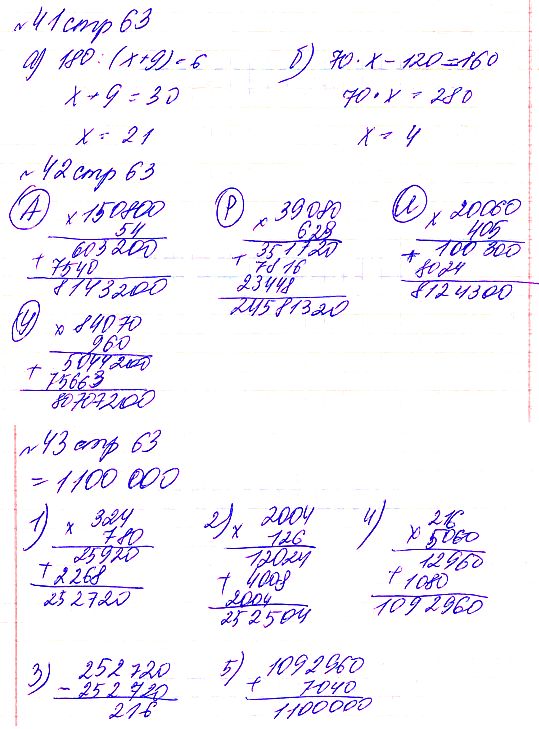 №41 стр 63
а) 180 : (x+9) = 6
x + 9 = 30
x = 21
б) 70 · x − 120 = 160
70 · x = 280
x = 4
№42 стр 63
А
x 150800
54
603200
+ 7540
8143200
Р
x 39080
629
351720
+ 7816
23448
24581320
Л
x 20060
405
100300
+ 8024
8124300
У
x 84070
960
5044200
+ 75663
80707200
№43 стр 63
= 1100 000
1) x 324
780
25920
+ 2268
252720
2) x 2004
126
12024
+ 4008
2004
252504
4) 216
x 5060
12960
+ 1080
1092960
3) 252720
− 252720
216
5) 1092960
+ 7040
1100000